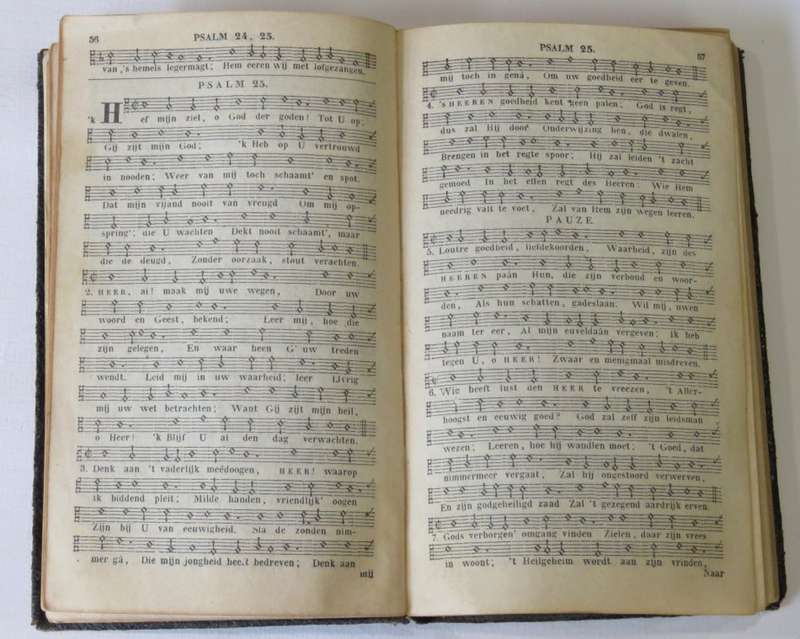 56
PSALM 24, 25.
van 's hemels legermagt; Hem eeren wij met lofgezangen.
PSALM 25.
'k Hef mijn ziel, o God der goden! Tot U op;
Gij zijt mijn God; 'k Heb op U vertrouwd
in nooden; Weer van mij toch schaamt' en spot.
Dat mijn vijand nooit van vreugd Om mij op-
spring'; die U wachten Dekt nooit schaamt', maar
die de deugd, Zonder oorzaak, stout verachten.
2. HEER, ai! maak mij uwe wegen, Door uw
woord en Geest, bekend; Leer mij, hoe die
zijn gelegen, En waar heen G' uw treden
wendt. Leid mij in uw waarheid; leer IJvrig
mij uw wet betrachten; Want Gij zijt mijn heil,
o Heer! 'k Blijf U al den dag verwachten.
3. Denk aan 't vaderlijk meêdoogen, HEER! waarop
ik biddend pleit; Milde handen, vriendlijk' oogen
Zijn bij U van eeuwigheid. Sla de zonden nim-
mer gâ, Die mijn jongheid heeft bedreven; Denk aan
mij
PSALM 25.
57
mij toch in genâ, Om uw goedheid eer te geven.
4. 's HEEREN goedheid kent geen palen; God is regt,
dus zal Hij door Onderwijzing hen, die dwalen,
Brengen in het regte spoor; Hij zal leiden 't zacht
gemoed In het effen regt des Heeren: Wie Hem
needrig valt te voet, Zal van Hem zijn wegen leeren.
PAUZE.
5. Loutre goedheid, liefdekoorden, Waarheid, zijn des
HEEREN paân Hun, die zijn verbond en woor-
den, Als hun schatten, gadeslaan. Wil mij, uwen
naam ter eer, Al mijn euveldaân vergeven; ik heb
tegen U, o HEER! Zwaar en menigmaal misdreven.
6. Wie heeft lust den HEER te vreezen, 't Aller-
hoogst en eeuwig goed? God zal zelf zijn leidsman
wezen; Leeren, hoe hij wandlen moet; 't Goed, dat
nimmermeer vergaat, Zal hij ongestoord verwerven,
En zijn godgeheiligd zaad Zal 't gezegend aardrijk erven.
7. Gods verborgen' omgang vinden Zielen, daar zijn vrees
in woont; 't Heilgeheim wordt aan zijn vrinden,
Naar